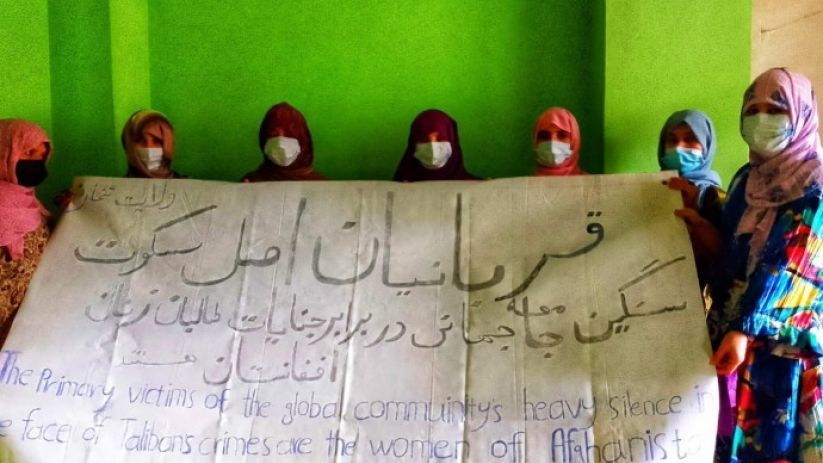 ولایت تخار
قربانیان اصل سکوت
سنگین جامعه جهانی در برابر جنایات طالبان زنان
افغانستان هستند
The Primary victims of the global community's heavy silence in
e face of Talibans crimes are the women of Afghanista